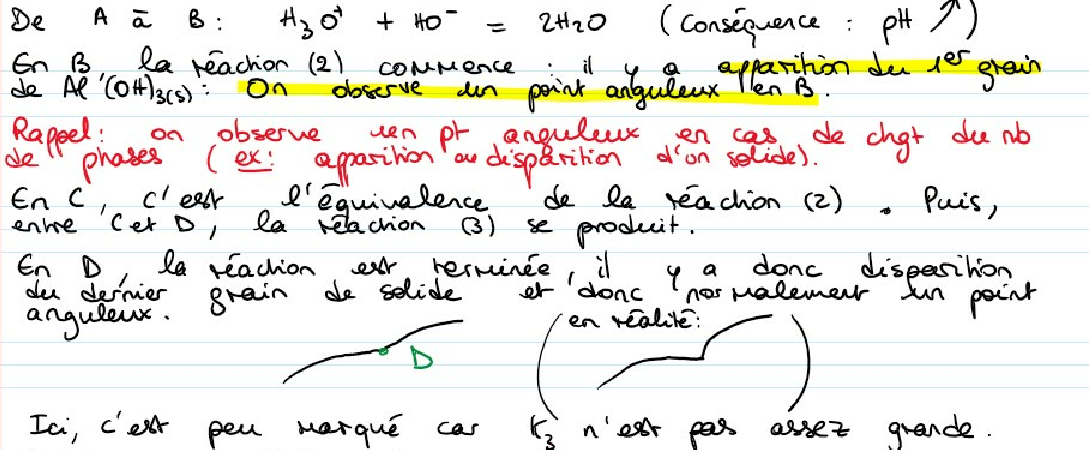 De A à B : H₃O⁺ + HO⁻ = 2H₂O (Conséquence : pH ↗)
En B la réaction (2) commence : il y a apparition du 1er grain
de Al(OH)₃(s) : On observe un point anguleux en B.
Rappel : on observe un pt anguleux en cas de chgt du nb
de phases (ex : apparition ou disparition d'un solide).
En C, c'est l'équivalence de la réaction (2). Puis,
entre C et D, la réaction (3) se produit.
En D, la réaction est terminée, il y a donc disparition
du dernier grain de solide et donc normalement un point
anguleux.
(en réalité : )
D
Ici, c'est peu marqué car K₃ n'est pas assez grande.